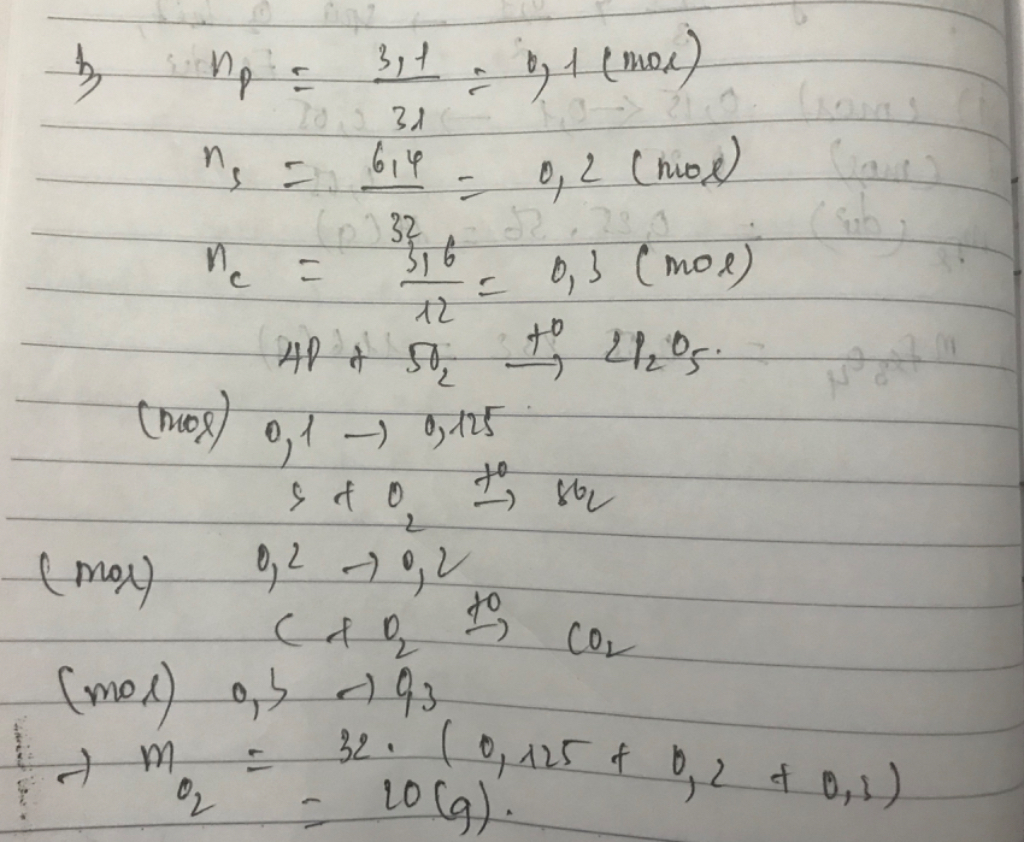 b, n_P = 3,1/31 = 0,1 (mol)
n_S = 6,4/32 = 0,2 (mol)
n_C = 3,6/12 = 0,3 (mol)
4P + 5O₂ →(t°) 2P₂O₅.
(mol) 0,1 → 0,125
S + O₂ →(t°) SO₂
(mol) 0,2 → 0,2
C + O₂ →(t°) CO₂
(mol) 0,3 → 0,3
→ m_O₂ = 32. (0,125 + 0,2 + 0,3)
= 20 (g).